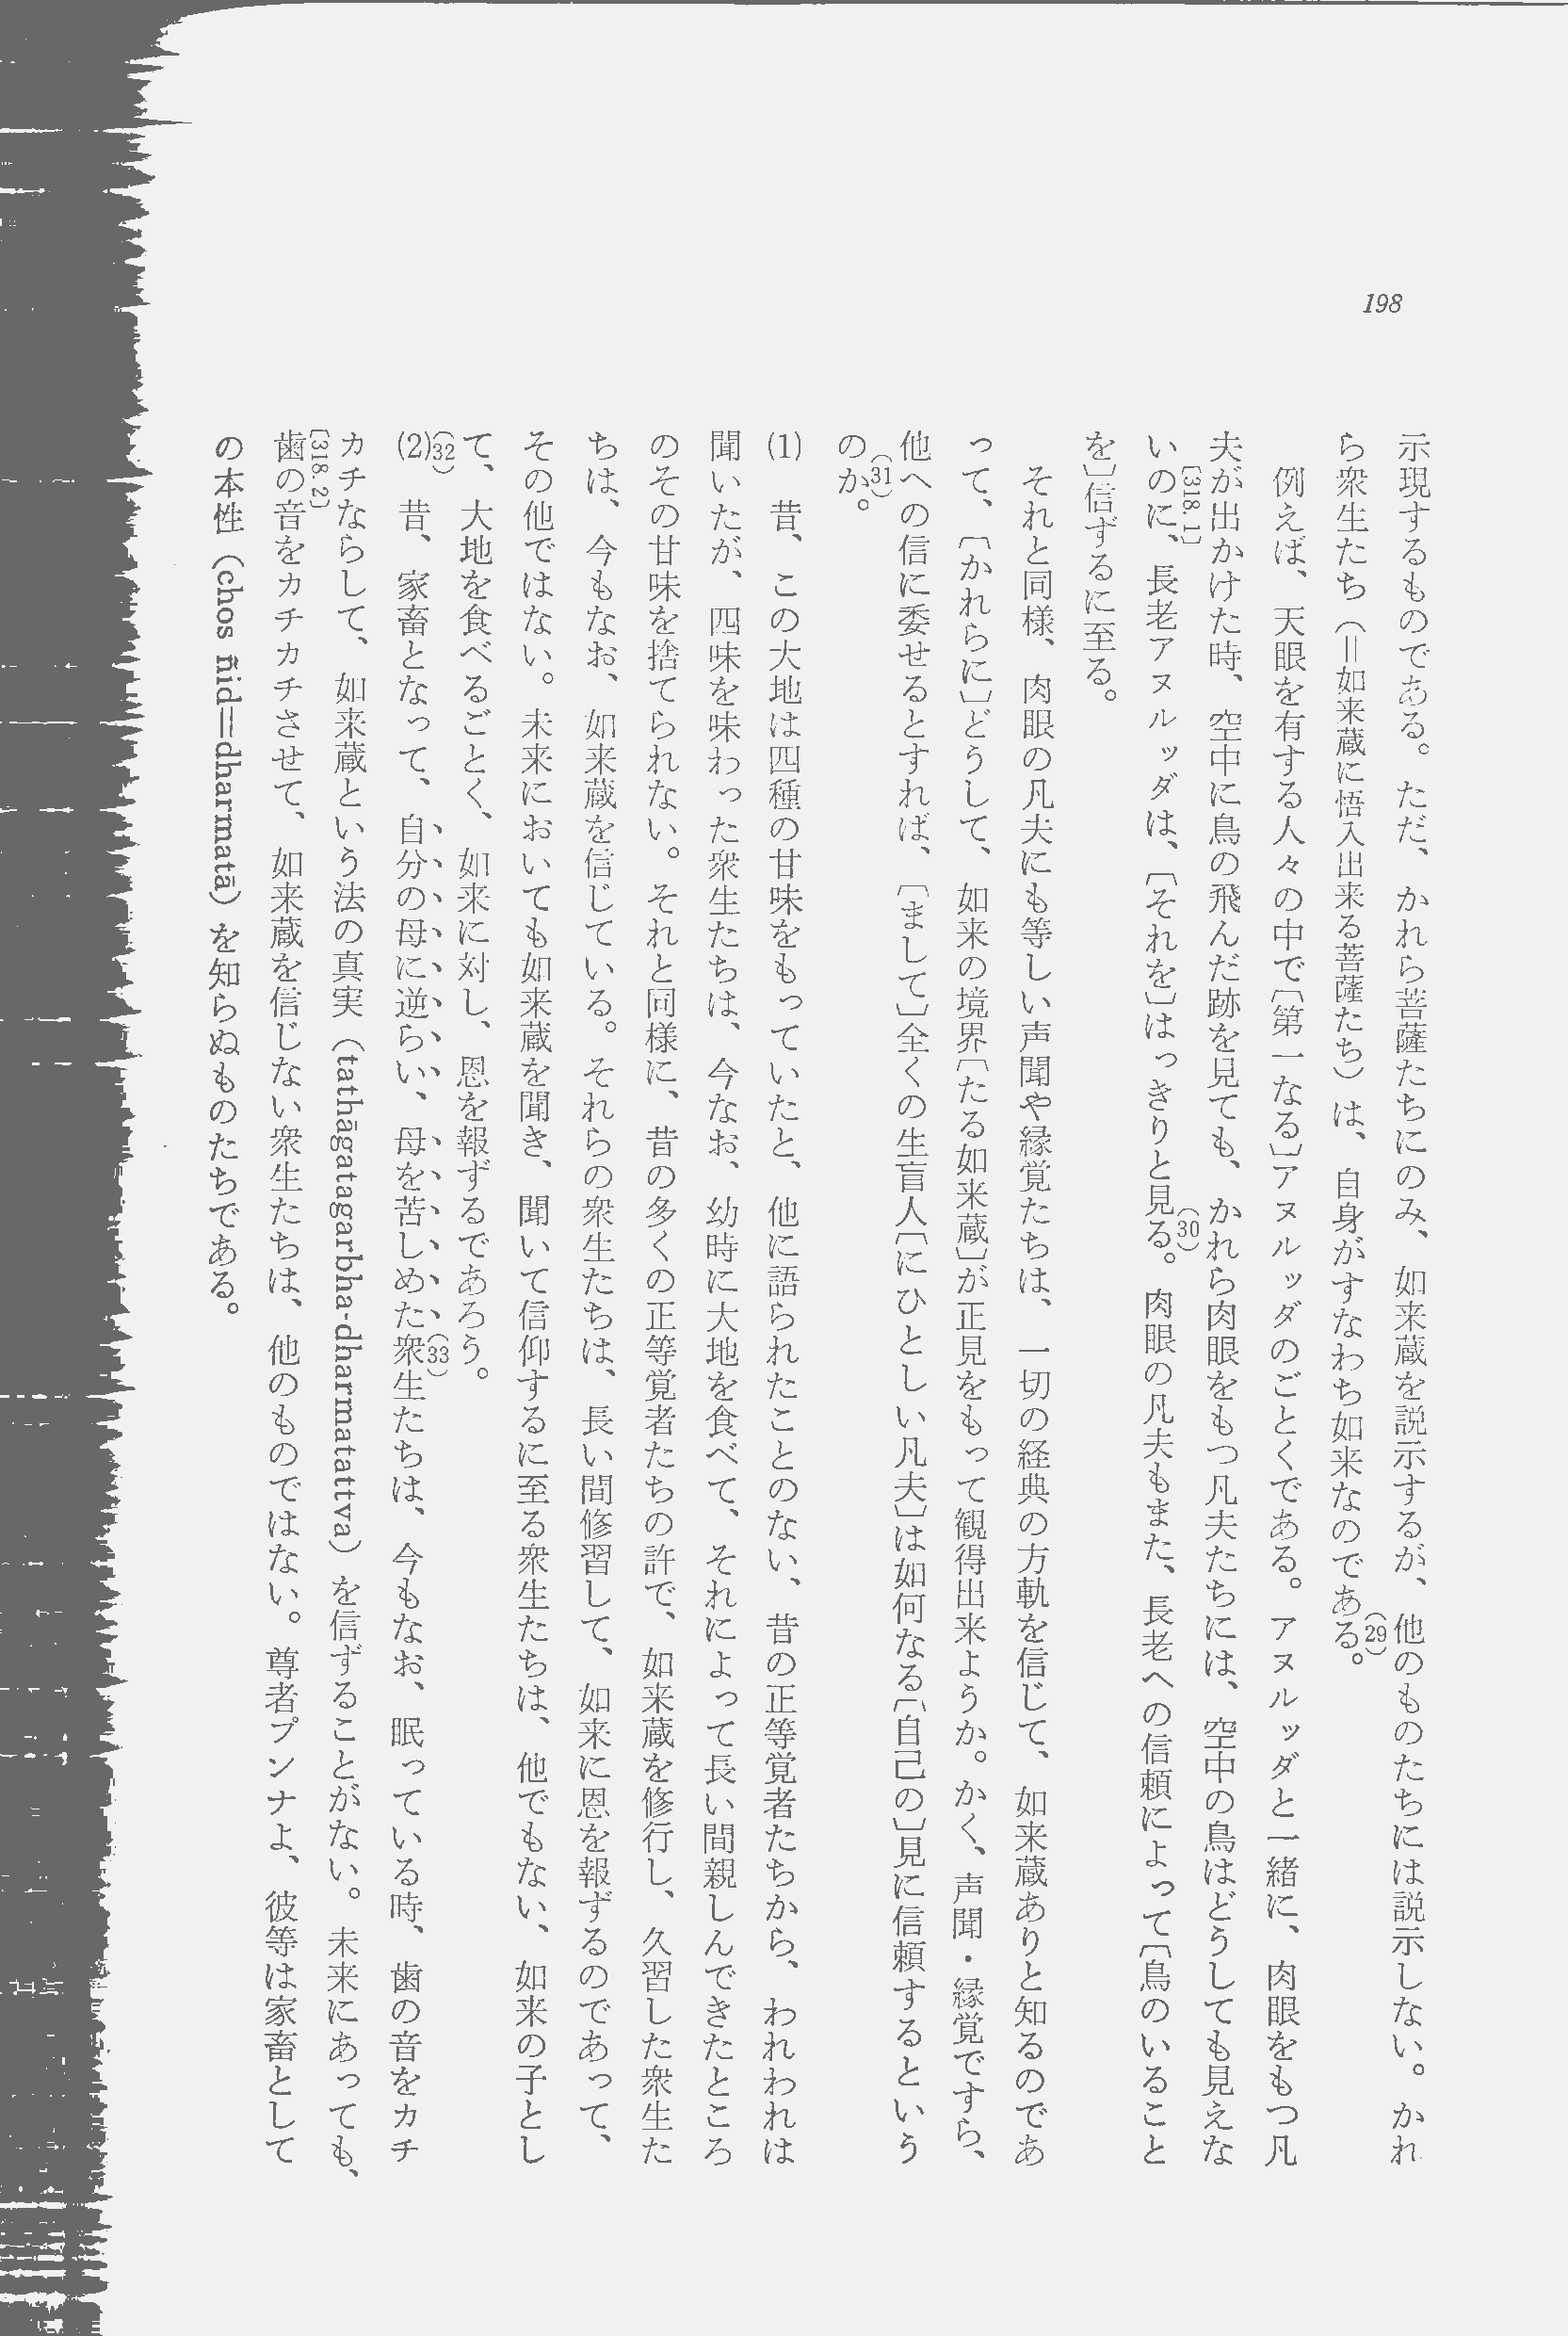 198
示現するものである。ただ、かれら菩薩たちにのみ、如来蔵を説示するが、他のものたちには説示しない。かれ
ら衆生たち（＝如来蔵に悟入出来る菩薩たち）は、自身がすなわち如来なのである。(29)
例えば、天眼を有する人々の中で〔第一なる〕アヌルッダのごとくである。アヌルッダと一緒に、肉眼をもつ凡
夫が出かけた時、空中に鳥の飛んだ跡を見ても、かれら肉眼をもつ凡夫たちには、空中の鳥はどうしても見えな
い〔318. 1〕のに、長老アヌルッダは、〔それを〕はっきりと見る。(30)肉眼の凡夫もまた、長老への信頼によって〔鳥のいること
を〕信ずるに至る。
それと同様、肉眼の凡夫にも等しい声聞や縁覚たちは、一切の経典の方軌を信じて、如来蔵ありと知るのであ
って、〔かれらに〕どうして、如来の境界〔たる如来蔵〕が正見をもって観得出来ようか。かく、声聞・縁覚ですら、
他への信に委せるとすれば、〔まして〕全くの生盲人〔にひとしい凡夫〕は如何なる〔自己の〕見に信頼するという
のか。(31)
(1)　昔、この大地は四種の甘味をもっていたと、他に語られたことのない、昔の正等覚者たちから、われわれは
聞いたが、四味を味わった衆生たちは、今なお、幼時に大地を食べて、それによって長い間親しんできたところ
のその甘味を捨てられない。それと同様に、昔の多くの正等覚者たちの許で、如来蔵を修行し、久習した衆生た
ちは、今もなお、如来蔵を信じている。それらの衆生たちは、長い間修習して、如来に恩を報ずるのであって、
その他ではない。未来においても如来蔵を聞き、聞いて信仰するに至る衆生たちは、他でもない、如来の子とし
て、大地を食べるごとく、如来に対し、恩を報ずるであろう。(32)
(2)　昔、家畜となって、自分の母に逆らい、母を苦しめた衆生(33)たちは、今もなお、眠っている時、歯の音をカチ
カチならして、如来蔵という法の真実（tathāgatagarbha-dharmatattva）を信ずることがない。未来にあっても、
〔318. 2〕歯の音をカチカチさせて、如来蔵を信じない衆生たちは、他のものではない。尊者プンナよ、彼等は家畜として
の本性（chos ñid＝dharmatā）を知らぬものたちである。